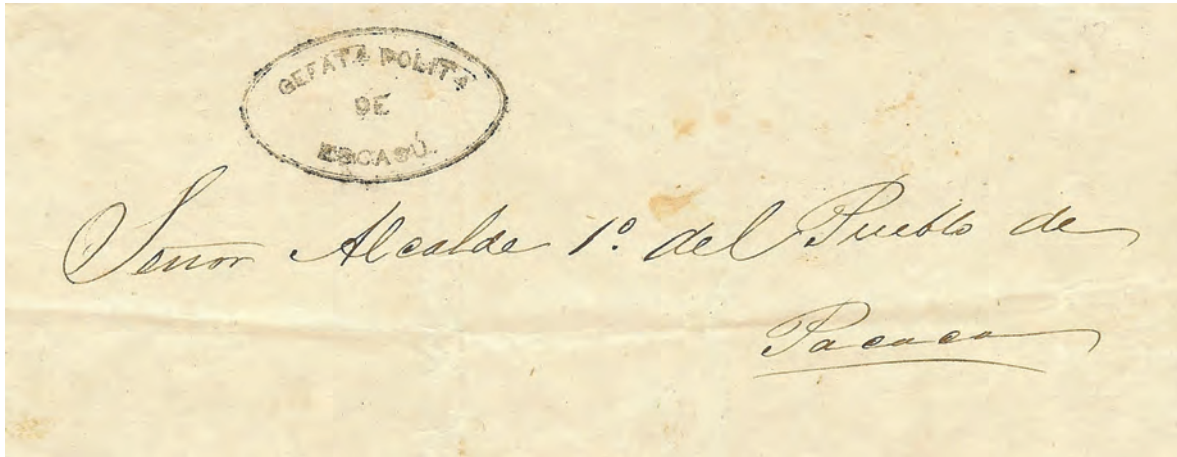 GEFATA POLITA
DE
ESCASÚ.
Señor Alcalde 1º del Pueblo de
Pacaca